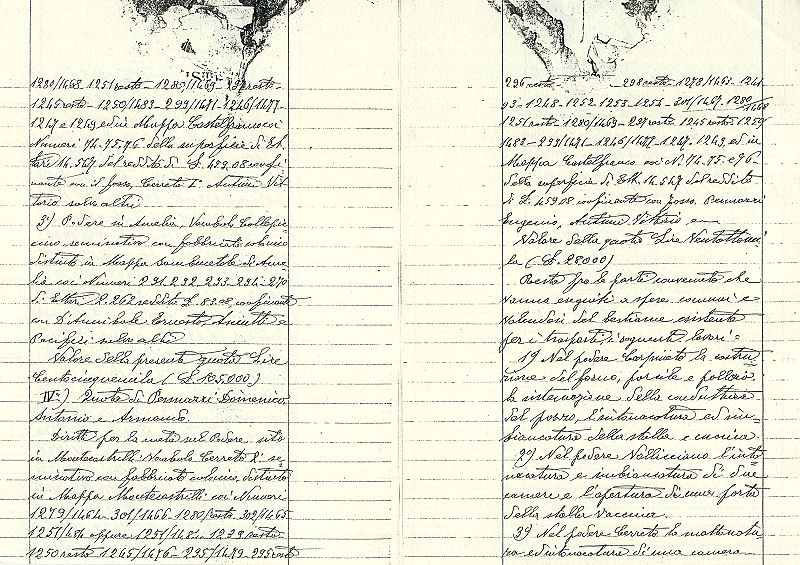 1280/1468 1251 resto - 1280/1469 - 297 resto -
1245 resto - 1250/1483 - 299/1471 - 1246/1477 -
1247 e 1249 ed in Mappa Castelfranco coi
Numeri 74-75-76 della superficie di Et-
tari 14.547 del reddito di £. 459,08 confi-
nante con il fosso, Cerreto I° Antimi Vit-
torio salvo altri
3°) Podere in Amelia, Vocabolo Collepic-
cino seminativo con fabbricato colonico
distinto in Mappa Sambucetole di Ame-
lia coi Numeri 231. 232 - 233 - 234 - 270
di Ettari 8.262 reddito £ 83.08 confinante
con D'Annibale Ernesto, Assettati e
Pacifici salvo altri
Valore della presente quota Lire
Centocinquemila (£ 105.000)
IV°) Quota di Pennazzi Domenico,
Antonio e Armando.
Diritti per la metà nel Podere sito
in Montecastrilli Vocabolo Cerreto I° se-
minativo con fabbricato colonico distinto
in Mappa Montecastrilli coi Numeri
1279/1464 - 301/1466 - 1280/resto - 302/1465
1257/484 oppure 1251/1484 - 1299 resto -
1250 resto 1245/1476 - 295/1479 - 295 resto
296 resto - 298 resto - 1278/1463 - 1241
93 - 1248 - 1252 - 1253 - 1254 - 301/1467 - 1280/1468
1251 resto - 1280/1469 - 297 resto 1245 resto - 1250
1483 - 299/1471 - 1246/1477 - 1247 - 1249, ed in
Mappa Castelfranco coi N. 74-75 e 76
della superficie di Ett. 14.547 del reddito
di £. 459.08 confinante con fosso, Pennazzi
Eugenio, Antimi Vittorio
Valore della quota Lire Ventottomi-
la (£. 28000)
Resta fra le parti convenuto che
vanno eseguiti a spese comuni e
valendosi del bestiame esistente
per i trasporti i seguenti lavori:
1°) Nel podere Carpineto la costru-
zione del forno, porcile e pollaio,
la sistemazione della conduttura
del pozzo, l'intonacatura ed im-
biancatura della stalla e cucina.
2°) Nel podere Vallicciano l'into-
nacatura e imbiancatura di due
camere e l'apertura di una porta
della stalla vaccina.
3°) Nel podere Cerreto la mattonatu-
ra ed intonacatura di una camera